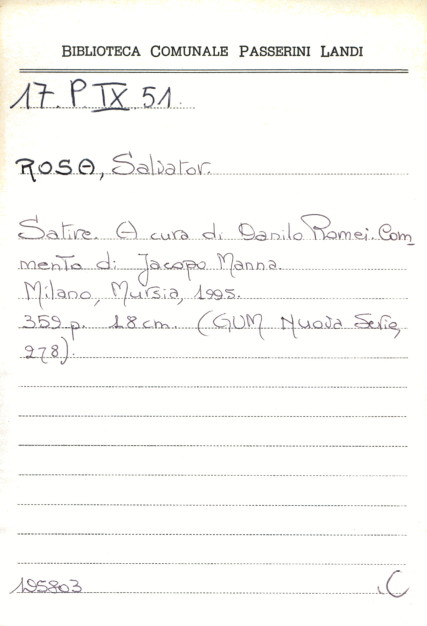 BIBLIOTECA COMUNALE PASSERINI LANDI
17. P. IX 51
ROSA, Salvator.
Satire. A cura di Danilo Romei. Com_
mento di Jacopo Manna.
Milano, Mursia, 1995.
359 p. 18 cm. (GUM Nuova Serie,
278).
195803 C